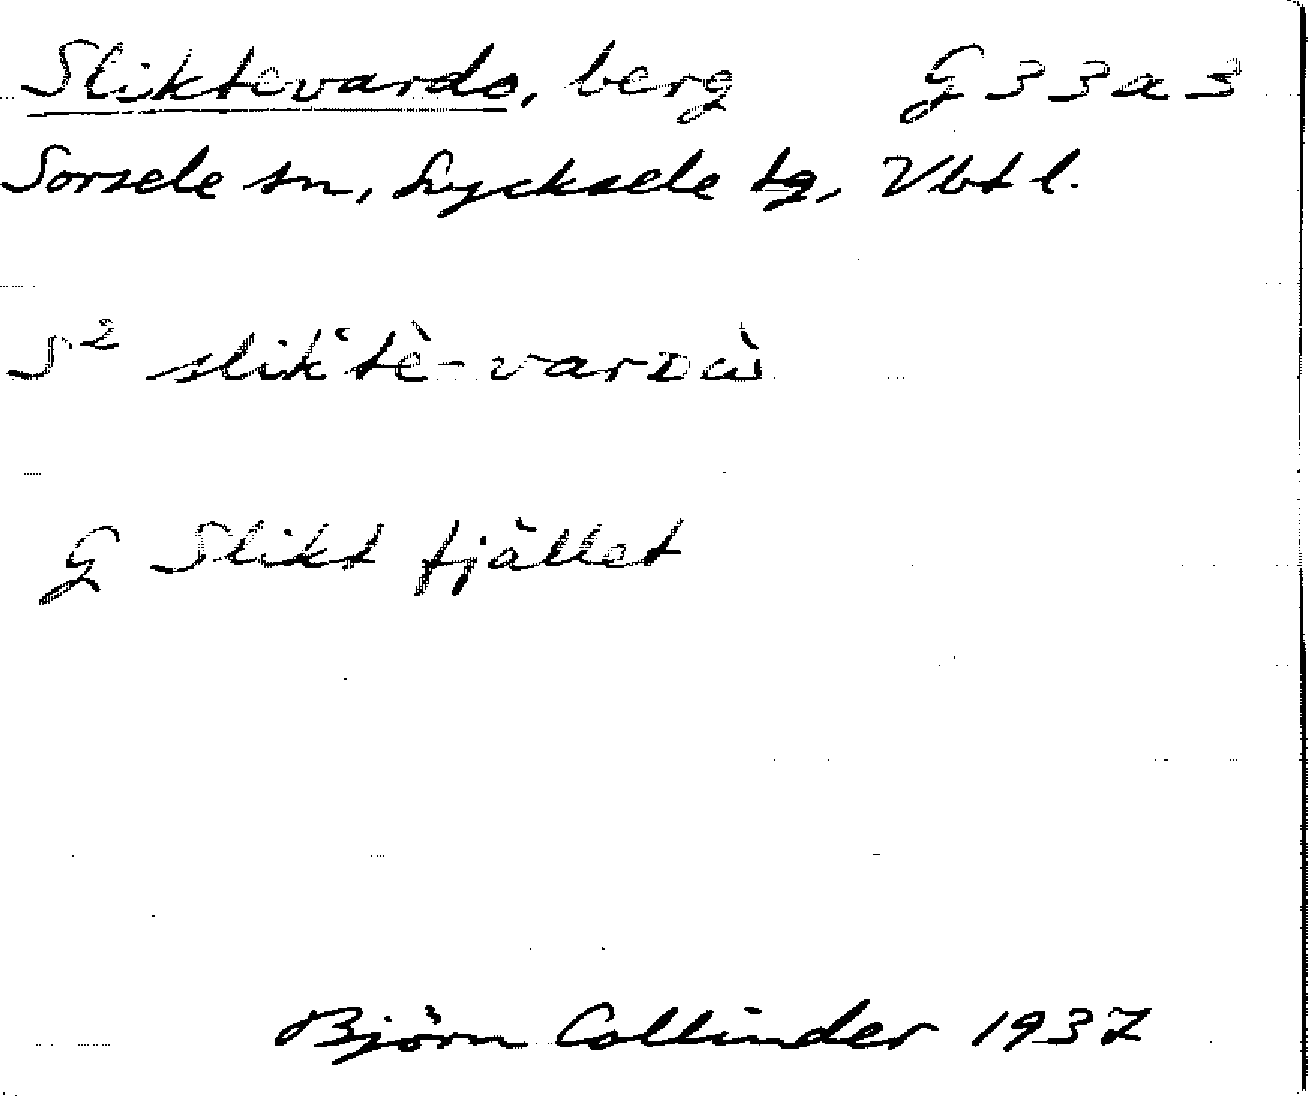 Sliktevardo, berg G 33 a 3
Sorsele sn, Lycksele tg, Vbtl.
S² slik'tè-varᴅὼ
G Sliktfjället
Björn Collinder 1937